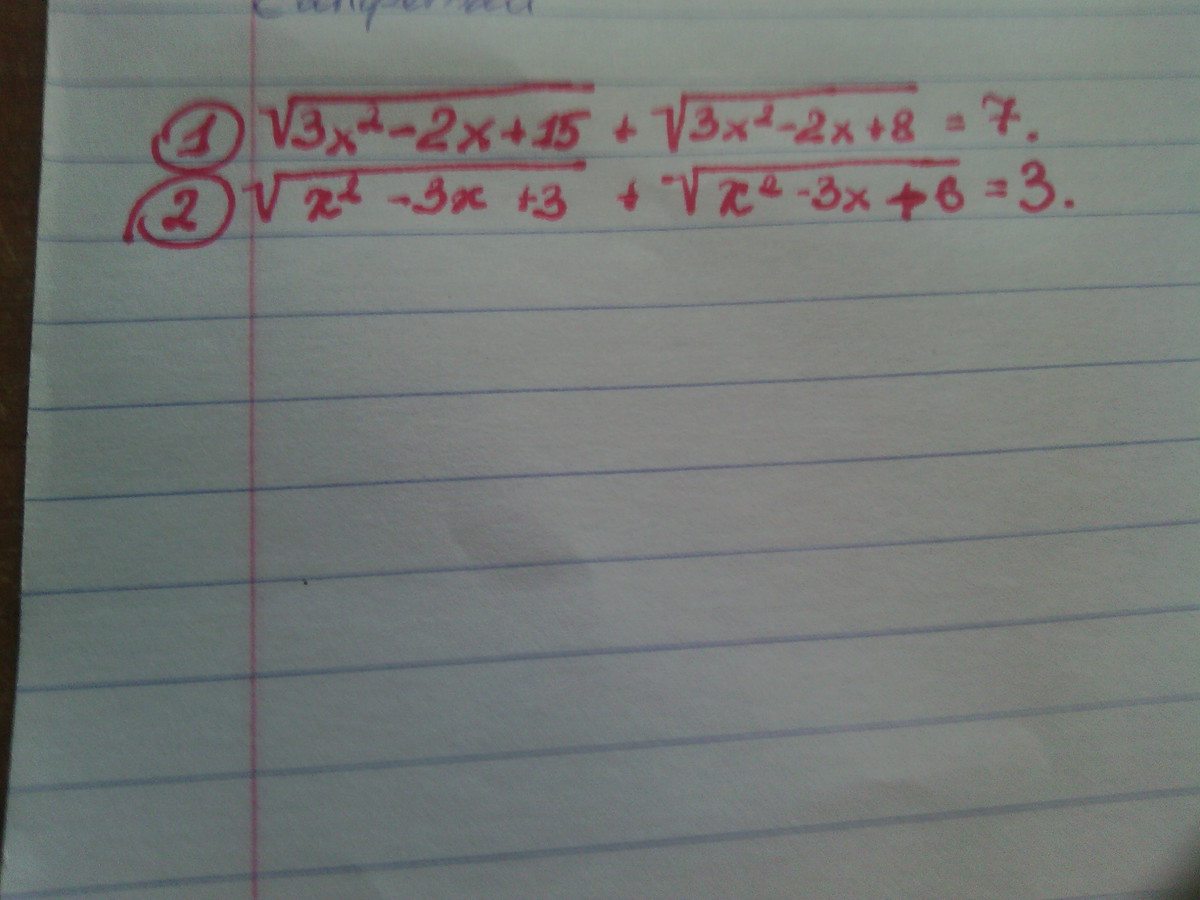 ① √3x²-2x+15 + √3x²-2x+8 = 7.
② √x²-3x+3 + √x²-3x+6 = 3.